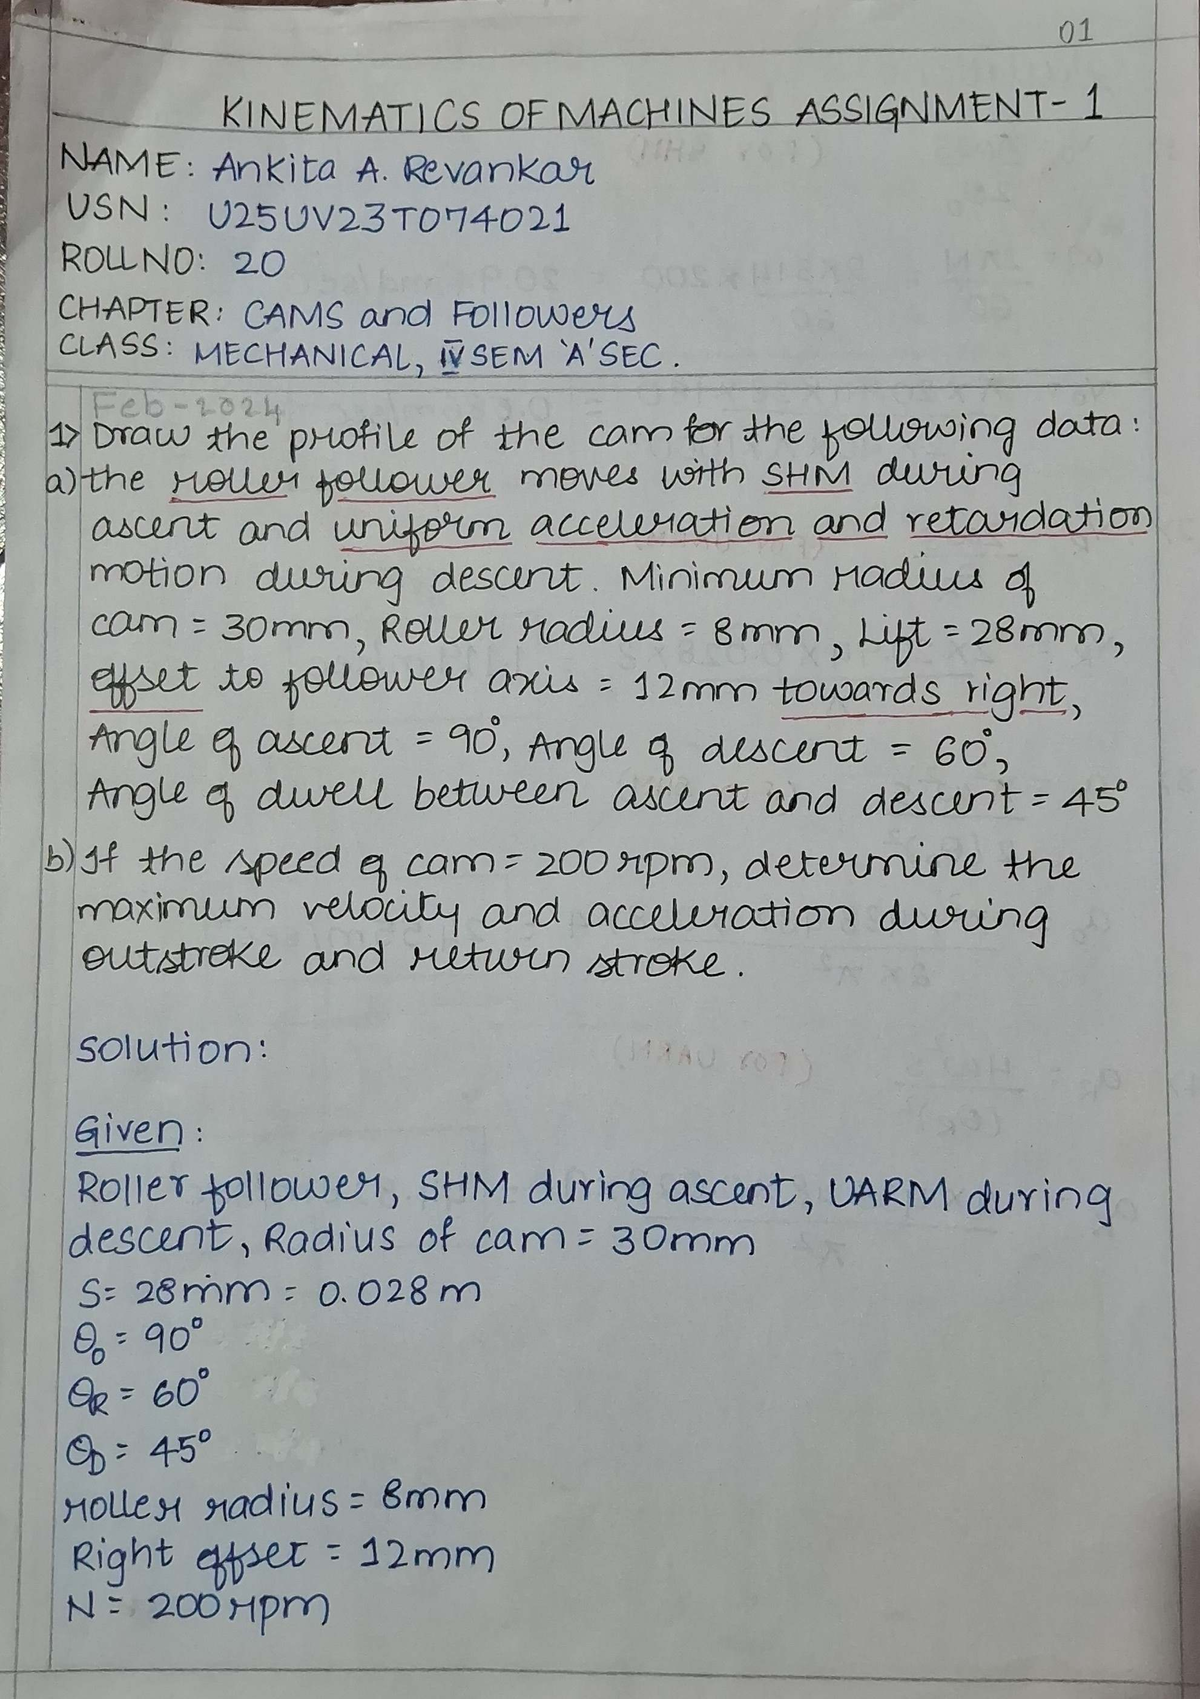 01
KINEMATICS OF MACHINES ASSIGNMENT- 1
NAME: Ankita A. Revankar
USN: U25UV23T074021
ROLLNO: 20
CHAPTER: CAMS and Followers
CLASS: MECHANICAL, IV SEM 'A' SEC.
Feb-2024
1> Draw the profile of the cam for the following data:
a) the roller follower moves with SHM during
ascent and uniform acceleration and retardation
motion during descent. Minimum radius of
cam = 30mm, Roller radius = 8mm, Lift = 28mm,
offset to follower axis = 12mm towards right,
Angle of ascent = 90°, Angle of descent = 60°,
Angle of dwell between ascent and descent = 45°
b) If the speed of cam = 200rpm, determine the
maximum velocity and acceleration during
outstroke and return stroke.
Solution:
Given:
Roller follower, SHM during ascent, UARM during
descent, Radius of cam = 30mm
S= 28mm = 0.028m
θo = 90°
θR = 60°
θD = 45°
roller radius = 8mm
Right offset = 12mm
N = 200rpm